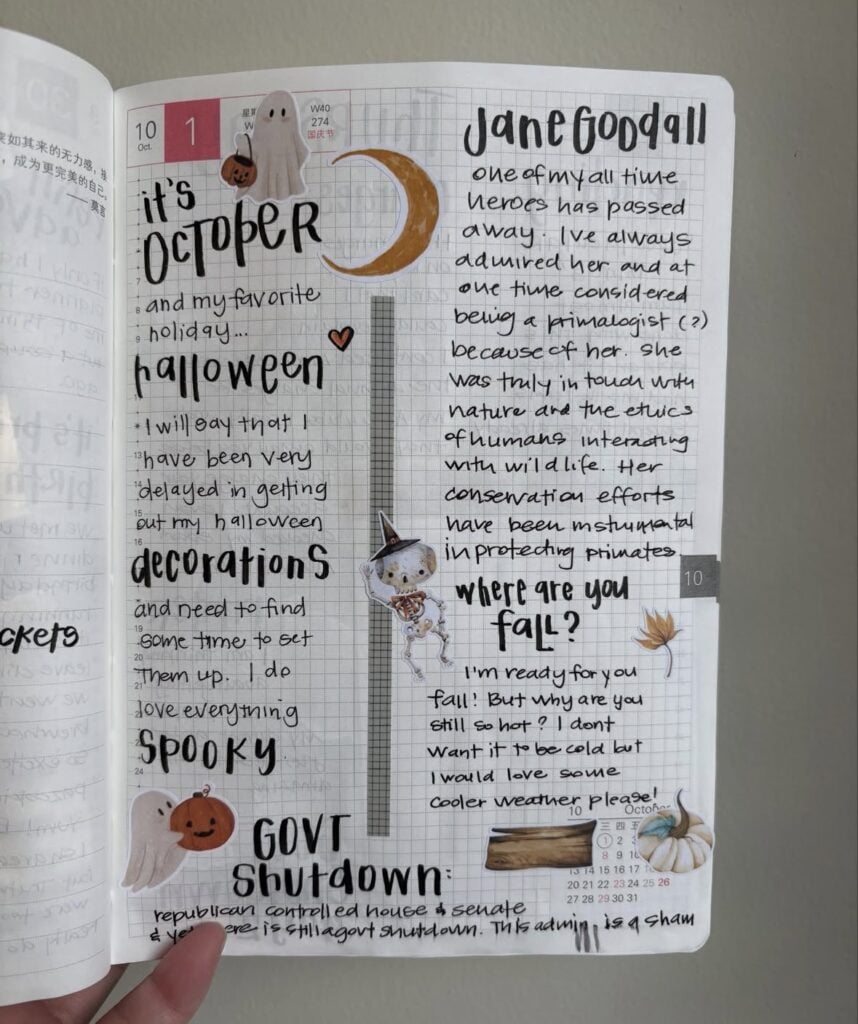 突如其来的无力感,接
,成为更完美的自己。
—— 莫言
ckers
10
Oct.
1
W40
274
国庆节
it's
October
and my favorite
holiday...
halloween
*I will say that I
have been very
delayed in getting
out my halloween
decorations
and need to find
some time to set
them up. I do
love everything
spooky
Jane Goodall
one of my all time
heroes has passed
away. Ive always
admired her and at
one time considered
being a primalogist (?)
because of her. she
was truly in touch with
nature and the ethics
of humans interacting
with wildlife. Her
conservation efforts
have been instrumental
in protecting primates.
10
where are you
fall?
I'm ready for you
fall! But why are you
still so hot? I dont
want it to be cold but
I would love some
cooler weather please!
10 October
三 四 五
1 2 3
8 9 10
13 14 15 16 17
20 21 22 23 24 25 26
27 28 29 30 31
GOVT
shutdown:
republican controlled house & senate
& yet there is still a govt shutdown. This admin is a sham